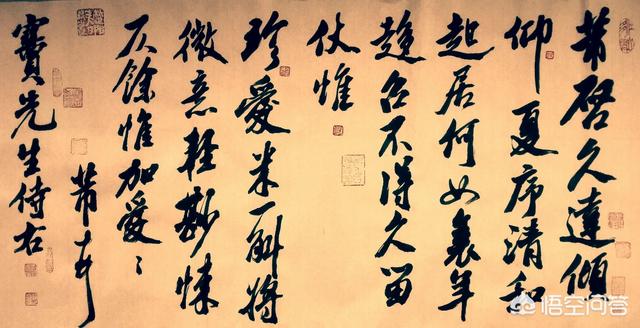 芾啓久違傾
仰夏序清和
起居何如衰年
趍召不得久留
伏惟
珍愛米一斛將
微意輕尠悚
仄餘惟加愛〻
芾頓首
竇先生侍右
悟空问答